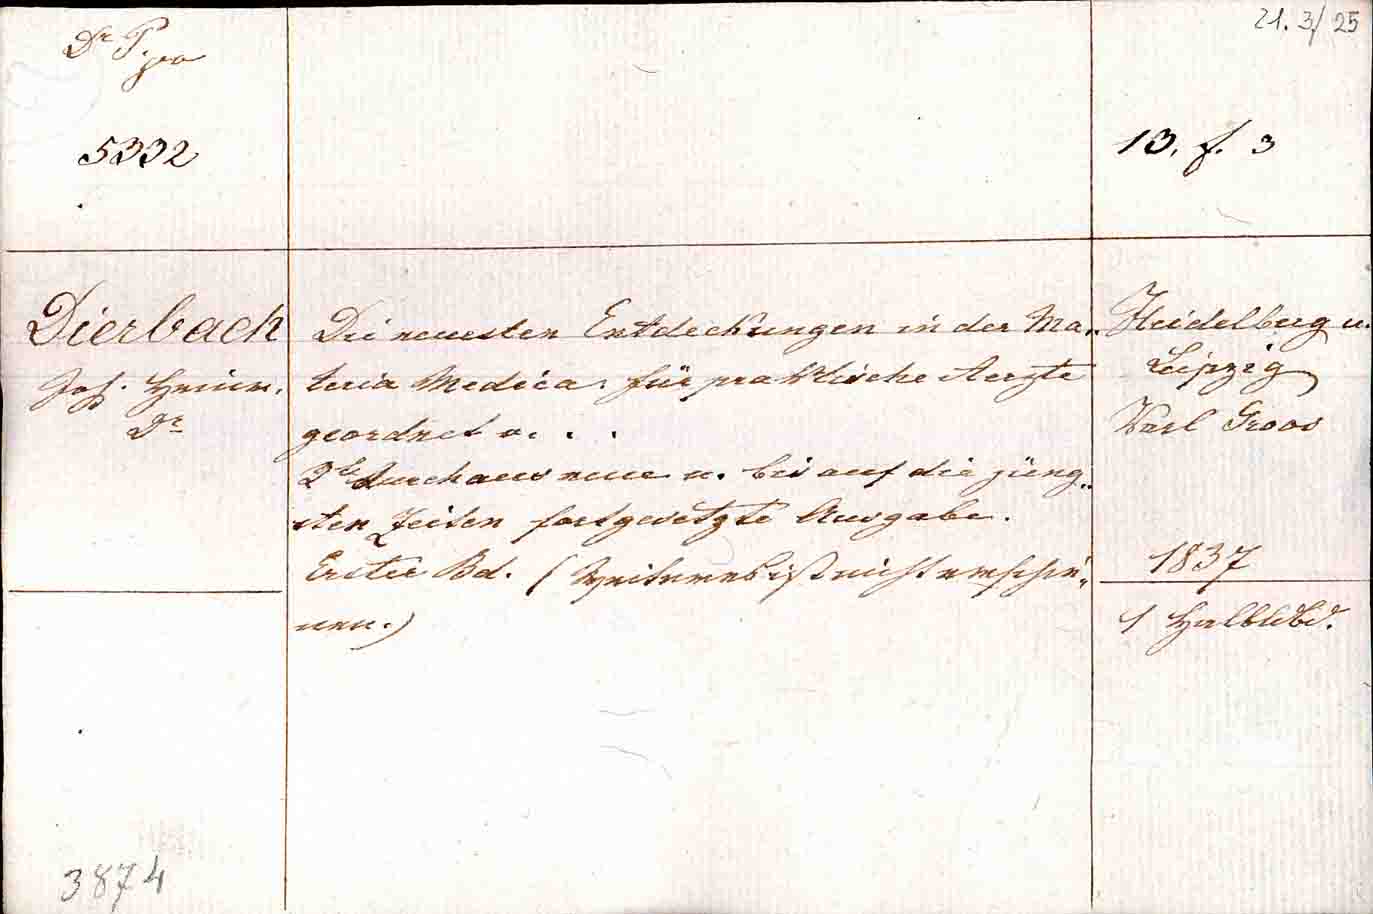 21. 3/25
Dr P.
5332
13. f. 3
Dierbach
Joh. Heinr.
Dr
Die neuesten Entdeckungen in der Ma„
teria Medica. für praktische Aerzte
geordnet v. . .
2te durchaus neue u. bis auf die jüng„
sten Zeiten fortgesetzte Ausgabe.
Erster Bd. ( Weiteres ist nicht erschie„
nen.)
Heidelberg u.
Leipzig
Karl Groos
1837
1 Halbldbd.
3874